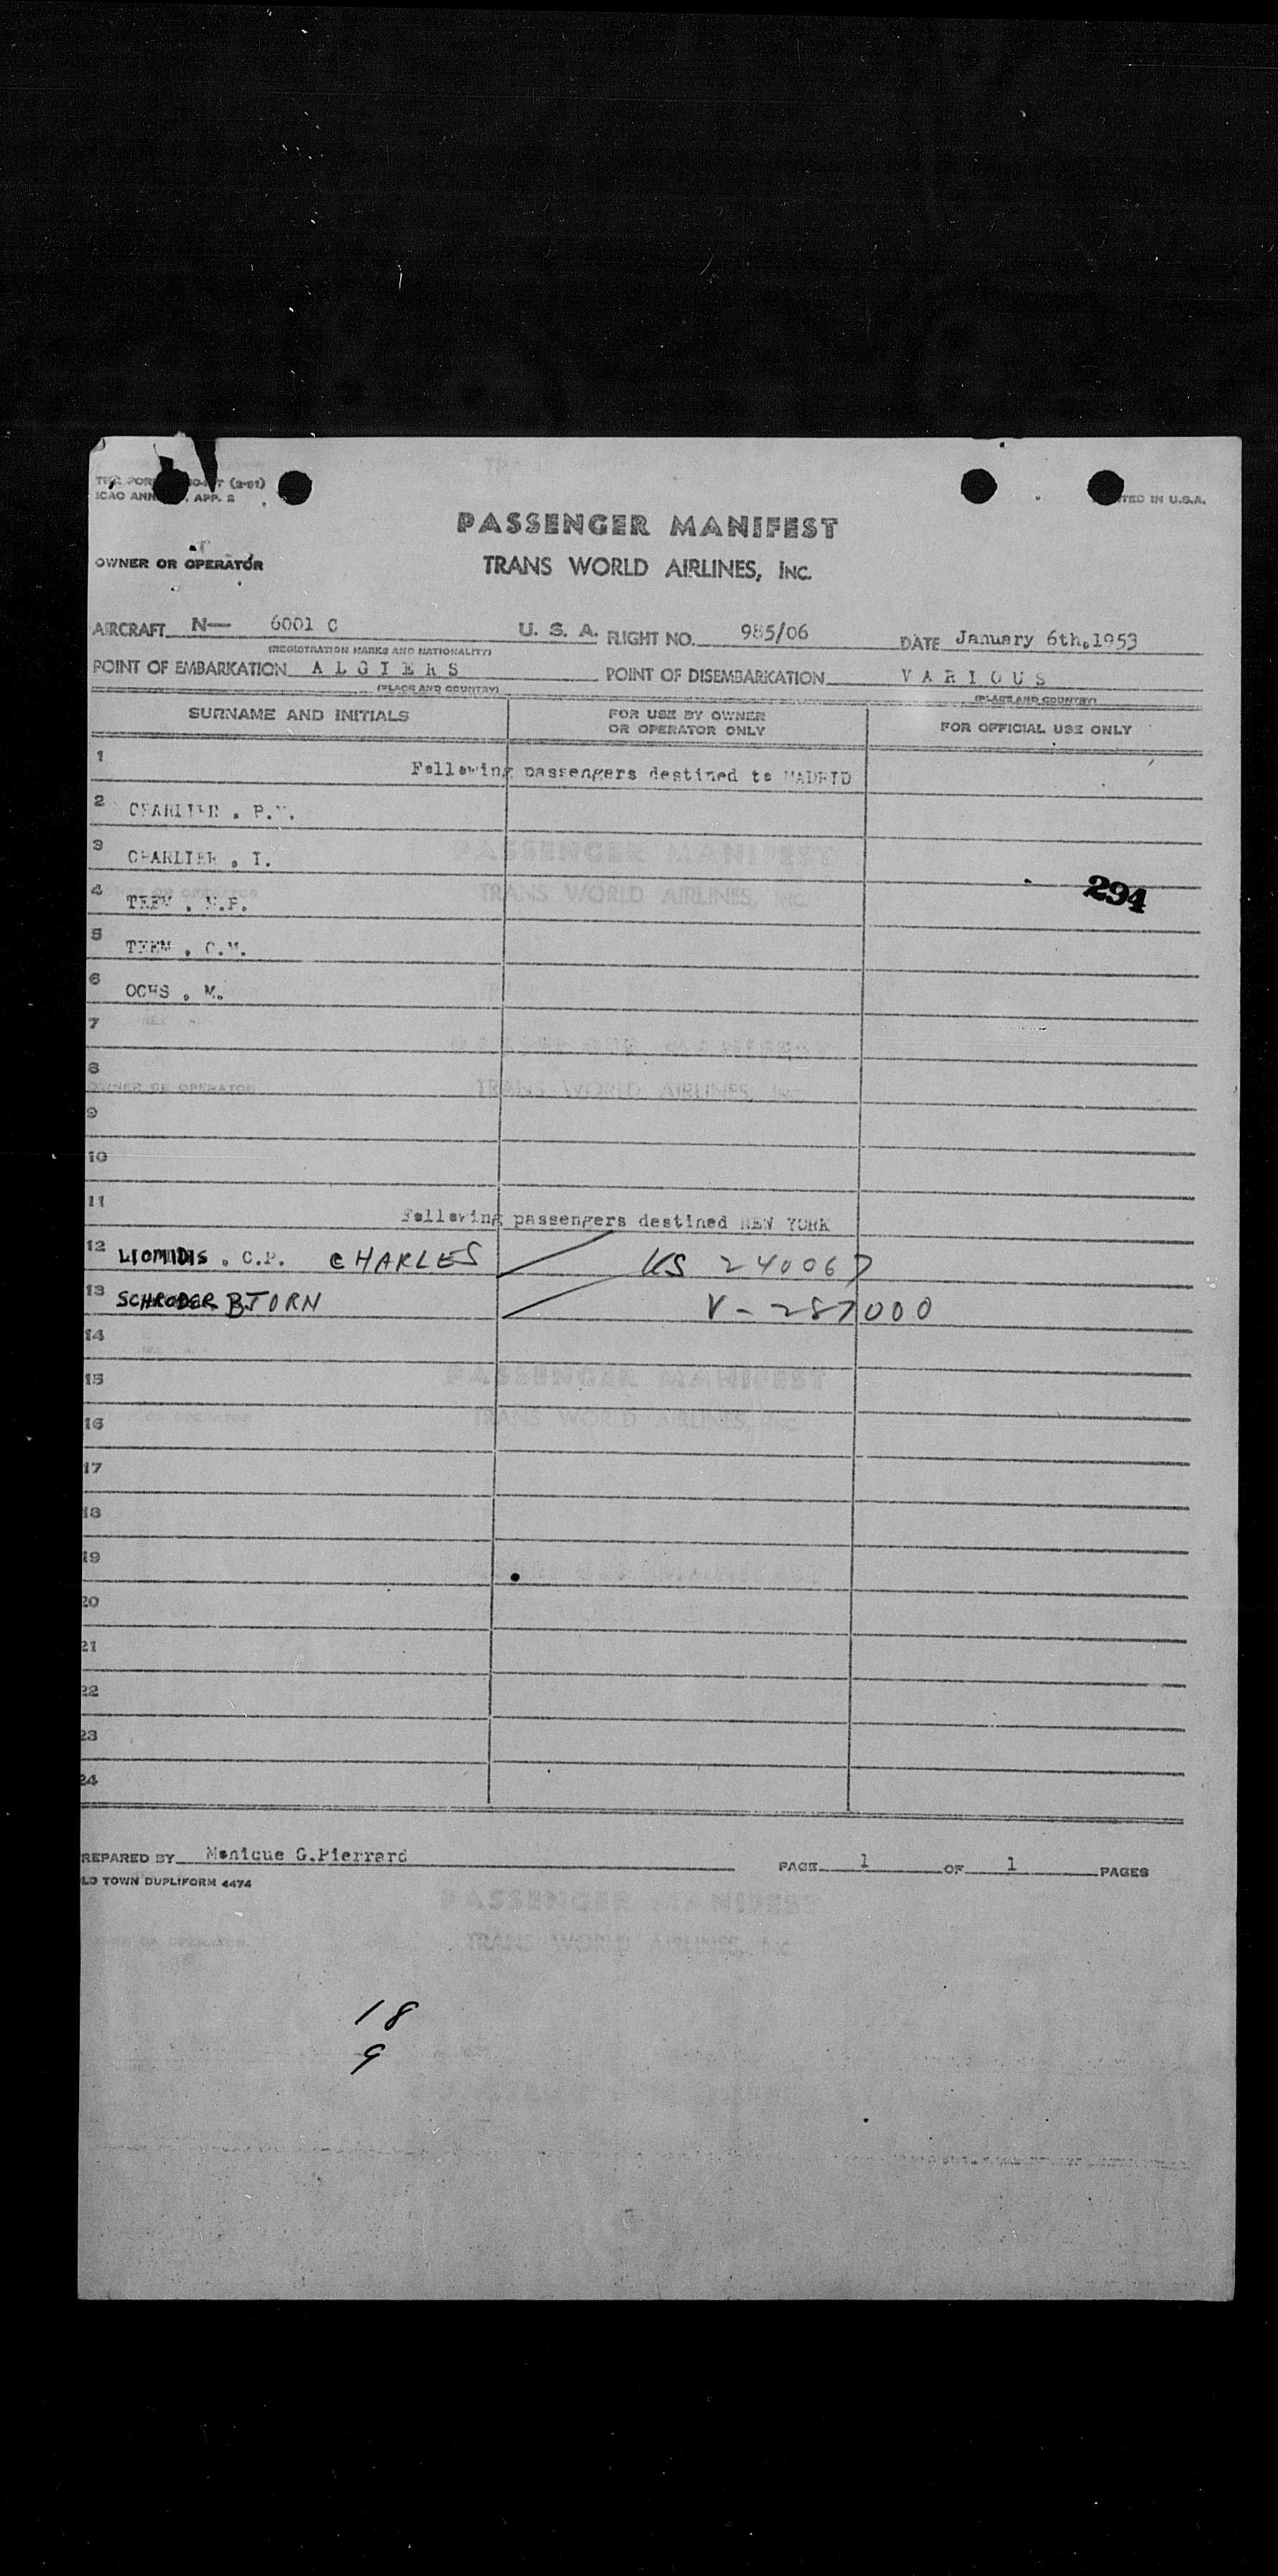 ICAO ANN APP. 2
PASSENGER MANIFEST
TRANS WORLD AIRLINES, INC.
OWNER OR OPERATOR
AIRCRAFT N— 6001 C U. S. A. FLIGHT NO. 985/06 DATE January 6th.1953
(REGISTRATION MARKS AND NATIONALITY)
POINT OF EMBARKATION A L G I E R S POINT OF DISEMBARKATION V A R I O U S
(PLACE AND COUNTRY) (PLACE AND COUNTRY)
SURNAME AND INITIALS FOR USE BY OWNER OR OPERATOR ONLY FOR OFFICIAL USE ONLY
1 Following passengers destined to MADRID
2 CHARLIER .
3 CHARLIER . I.
294
4
5 TEEM . C.M.
6 OCHS . M.
7
8
9
10
11 Following passengers destined NEW YORK
12 LIOMIDIS . C.P. CHARLES KS 240067
13 SCHRODER BJORN V-287000
14
15
16
17
18
19
20
21
22
23
24
REPARED BY Monique G.Pierrard PAGE 1 OF 1 PAGES
LD TOWN DUPLIFORM 4474
18
9